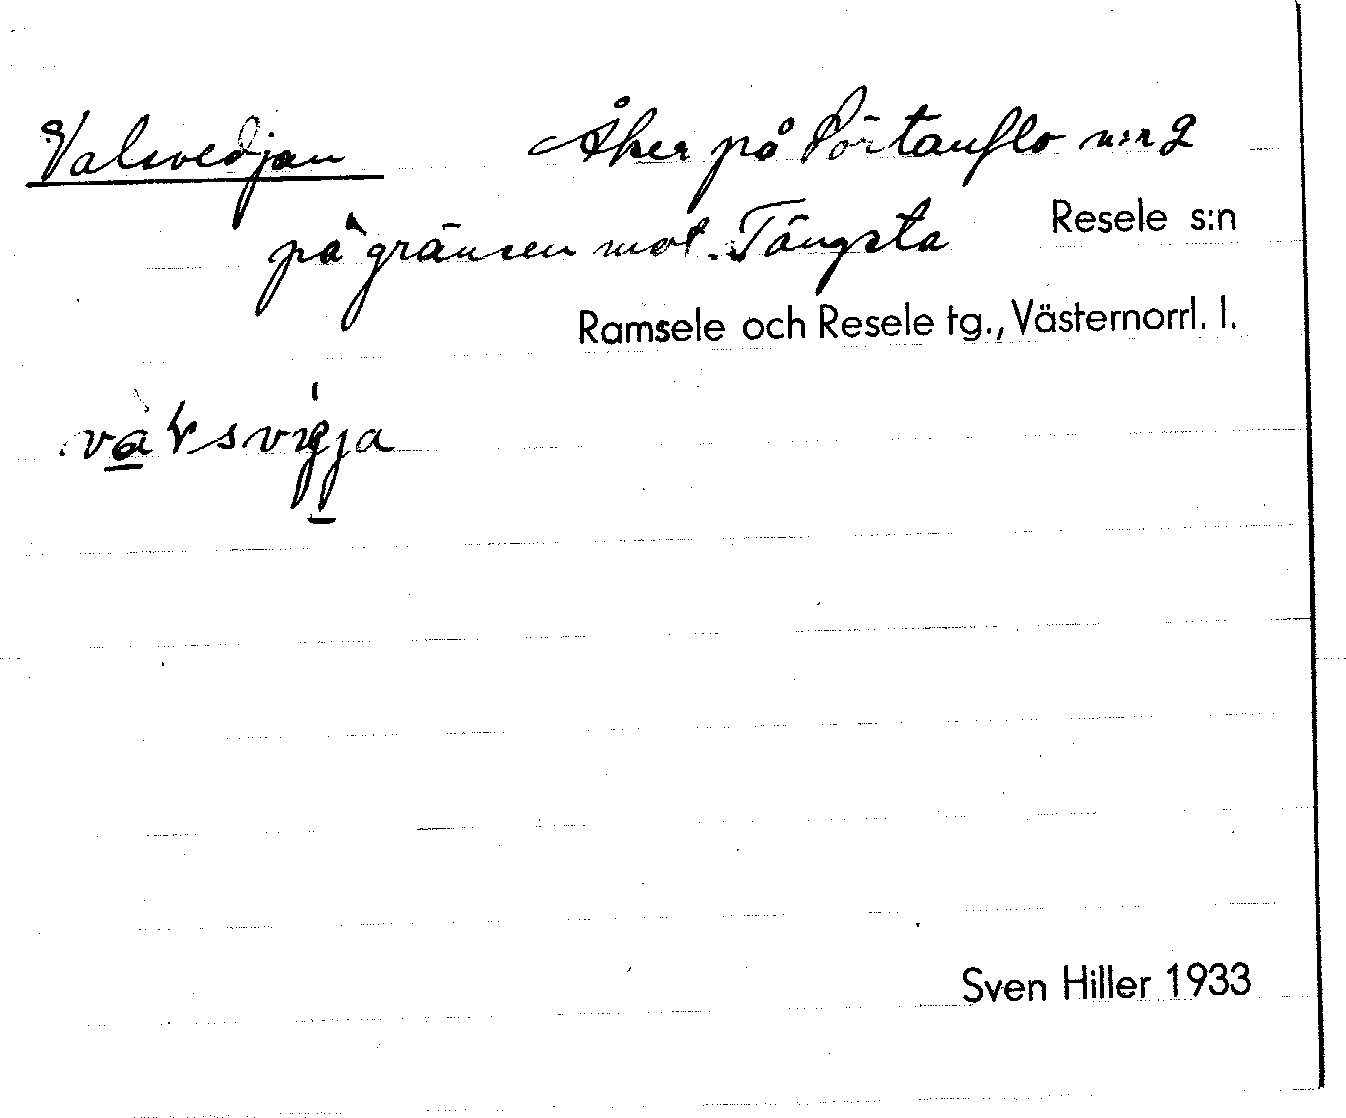 Valsvedjan Åker på Sörtanflo n:r 2
på gränsen mot Tängsta Resele s:n
Ramsele och Resele tg., Västernorrl. l.
Sven Hiller 1933